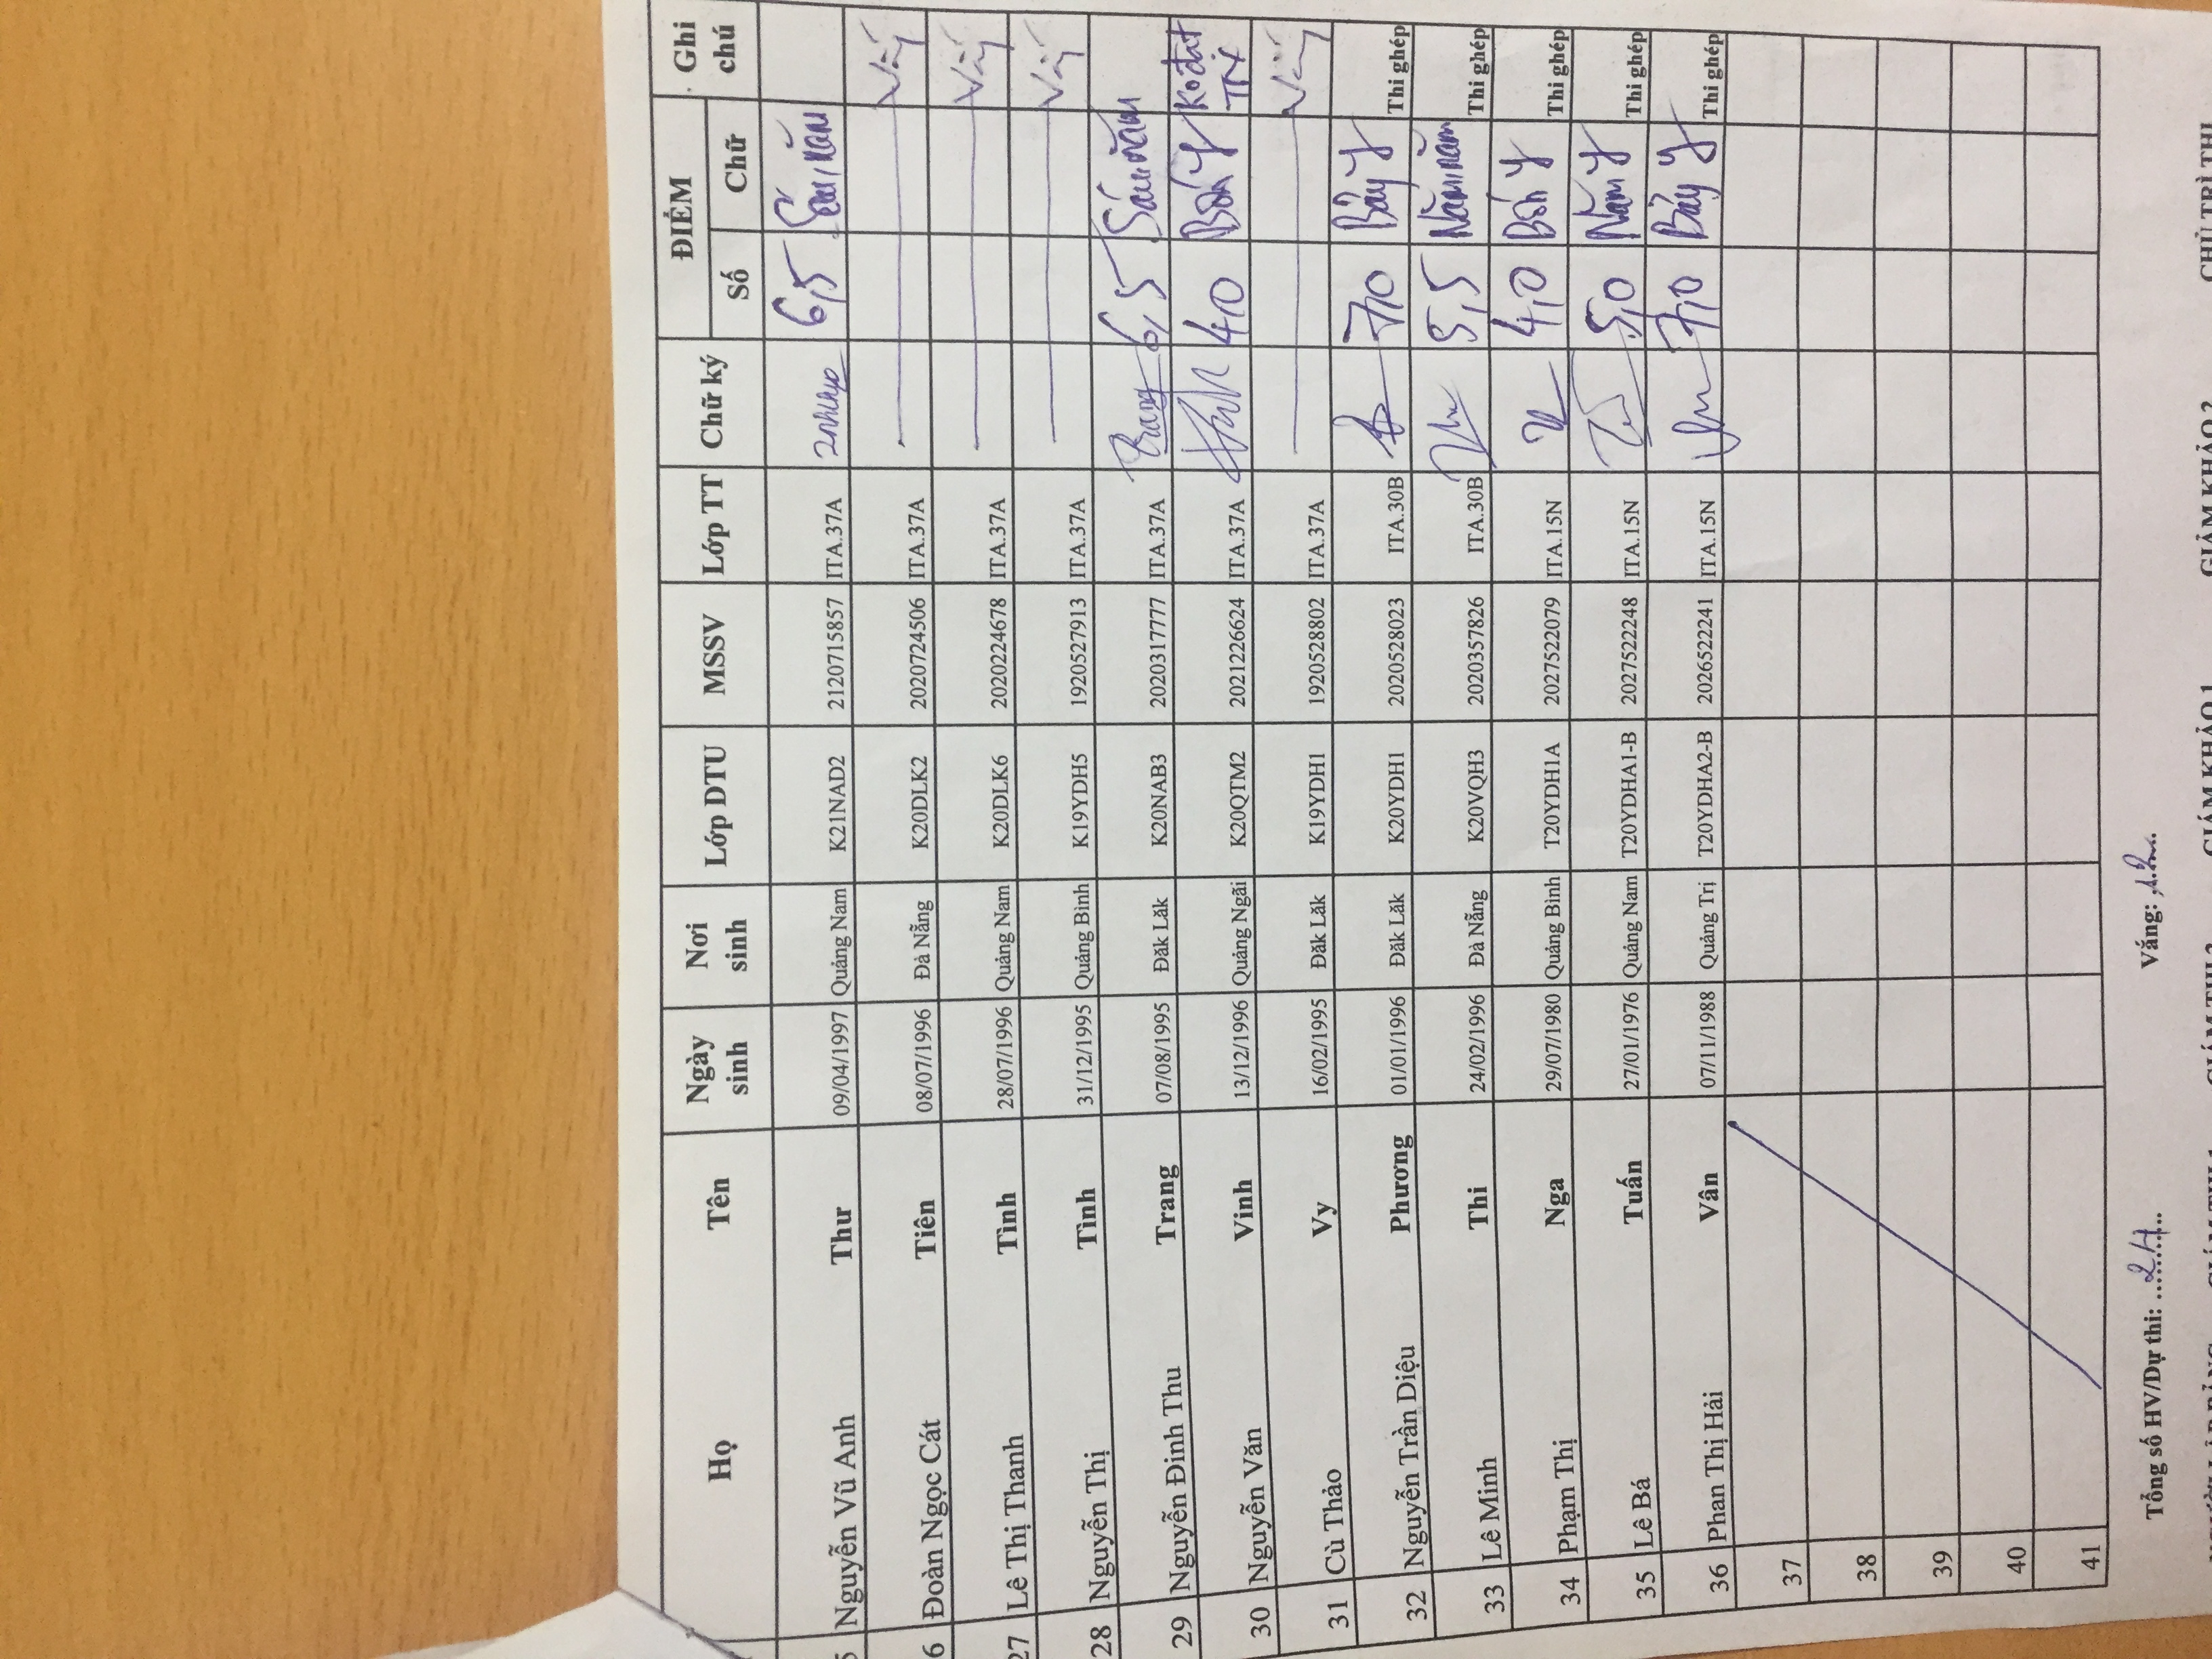 Họ Tên Ngày sinh Nơi sinh Lớp DTU MSSV Lớp TT Chữ ký ĐIỂM Số Chữ Ghi chú
Nguyễn Vũ Anh Thư 09/04/1997 Quảng Nam K21NAD2 2120715857 ITA.37A 6,5 Sáu, năm
6 Đoàn Ngọc Cát Tiên 08/07/1996 Đà Nẵng K20DLK2 2020724506 ITA.37A Vắng
27 Lê Thị Thanh Tình 28/07/1996 Quảng Nam K20DLK6 2020224678 ITA.37A Vắng
28 Nguyễn Thị Tình 31/12/1995 Quảng Bình K19YDH5 1920527913 ITA.37A Vắng
29 Nguyễn Đinh Thu Trang 07/08/1995 Đăk Lăk K20NAB3 2020317777 ITA.37A Trang 6,5 Sáu, năm
30 Nguyễn Văn Vinh 13/12/1996 Quảng Ngãi K20QTM2 2021226624 ITA.37A 4,0 Bốn y Ko đạt
31 Cù Thảo Vy 16/02/1995 Đăk Lăk K19YDH1 1920528802 ITA.37A Vắng
32 Nguyễn Trần Diệu Phương 01/01/1996 Đăk Lăk K20YDH1 2020528023 ITA.30B 7,0 Bảy y Thi ghép
33 Lê Minh Thi 24/02/1996 Đà Nẵng K20VQH3 2020357826 ITA.30B 5,5 Năm, năm Thi ghép
34 Phạm Thị Nga 29/07/1980 Quảng Bình T20YDH1A 2027522079 ITA.15N 4,0 Bốn y Thi ghép
35 Lê Bá Tuấn 27/01/1976 Quảng Nam T20YDHA1-B 2027522248 ITA.15N 5,0 Năm y Thi ghép
36 Phan Thị Hải Vân 07/11/1988 Quảng Trị T20YDHA2-B 2026522241 ITA.15N 7,0 Bảy y Thi ghép
37
38
39
40
41
Tổng số HV/Dự thi: 24 Vắng: 12
GIÁM KHẢO 1 GIÁM KHẢO 2 CHỦ TRÌ THI